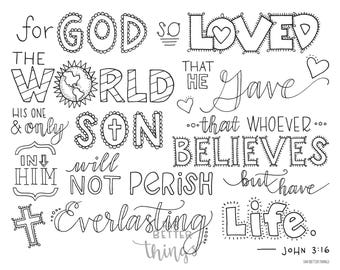 for GOD so LOVED
THE WORLD THAT HE Gave
HIS ONE & only SON that WHOEVER
BELIEVES
IN HIM will NOT PERISH but have
Everlasting Life.
BETTER things
JOHN 3:16